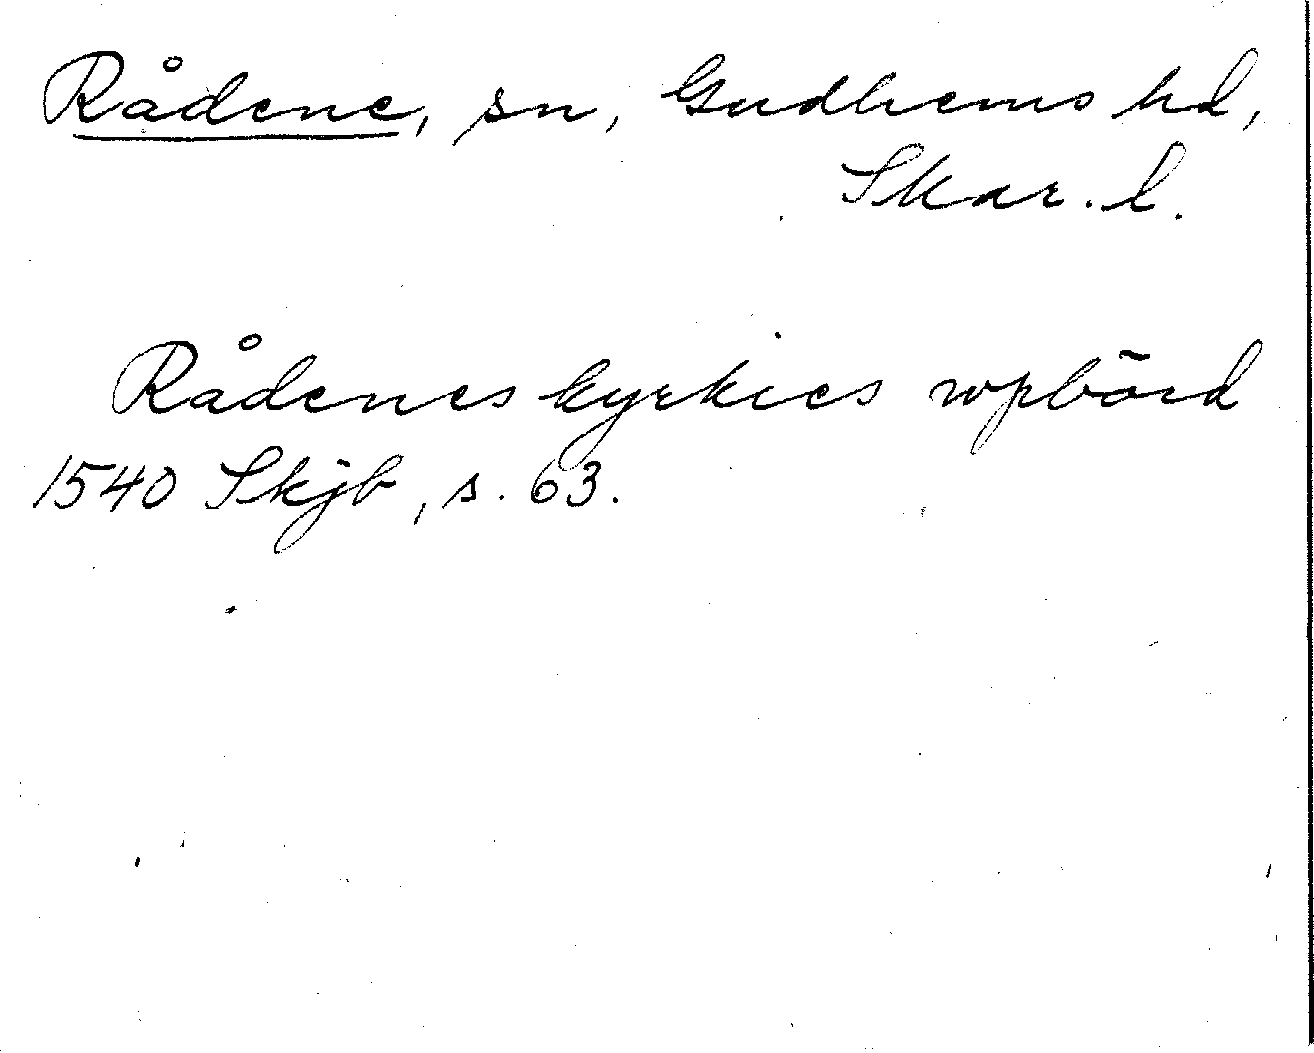 Rådene, sn, Gudhems hd,
Skar. l.
Rådenes kyrkies wpbörd
1540 Skjb, s. 63.